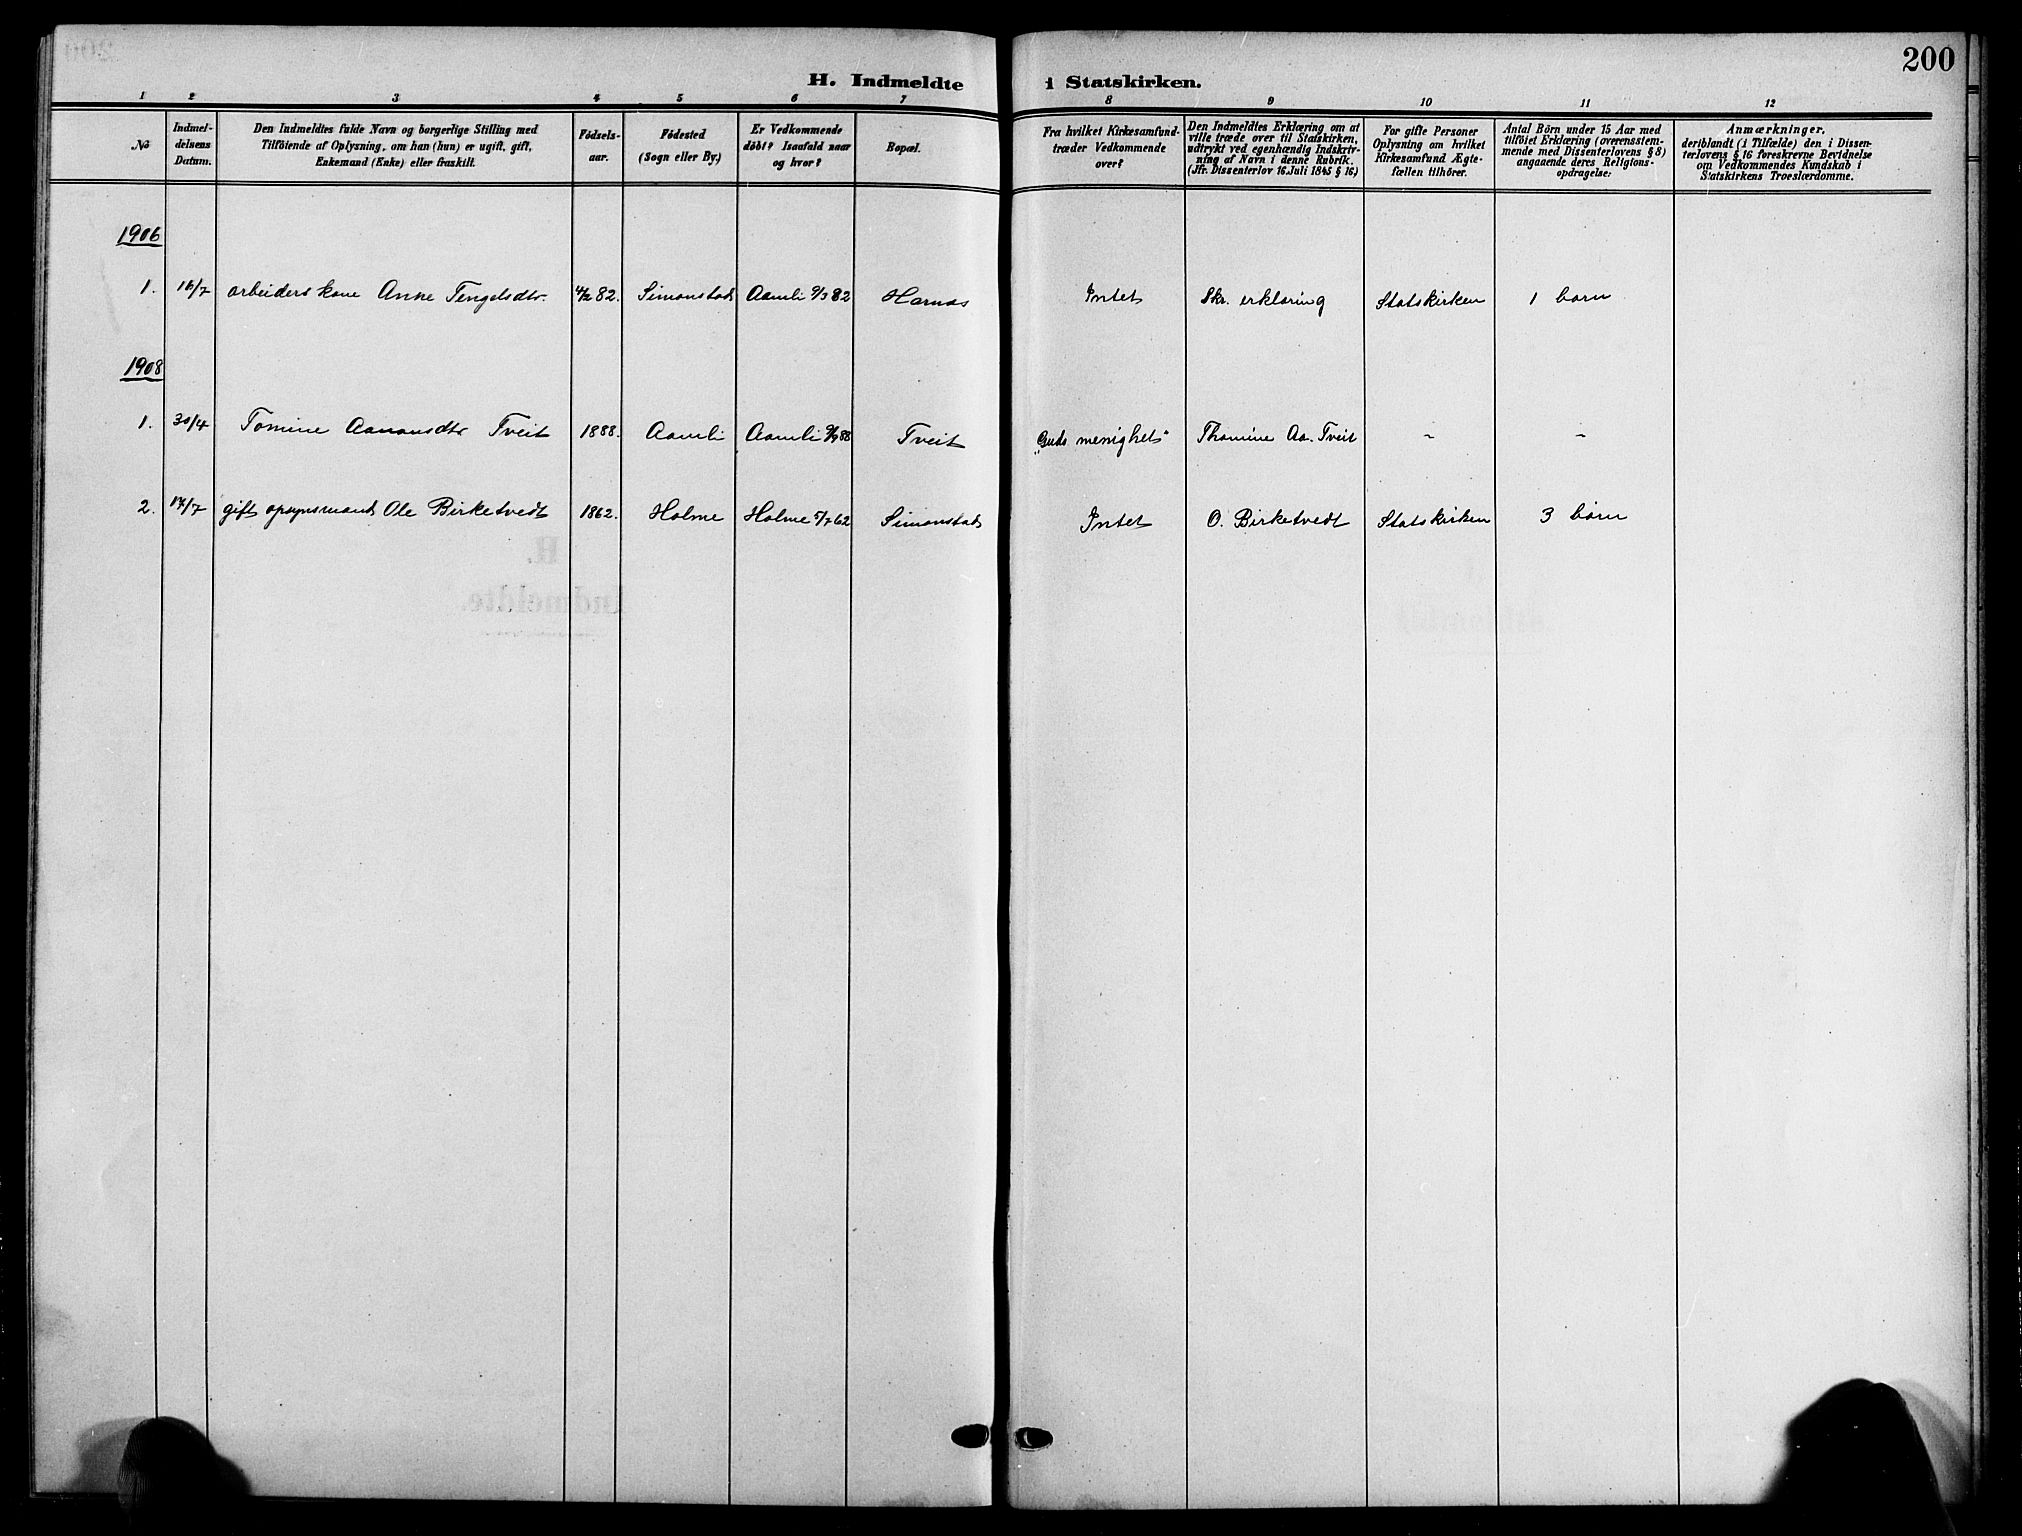 200
H. Indmeldte i Statskirken.
1 2 3 4 5 6 7 8 9 10 11 12
No
Indmel-
delsens
Datum.
Den Indmeldtes fulde Navn og borgerlige Stilling med
Tilföiende af Oplysning, om han (hun) er ugift, gift,
Enkemand (Enke) eller fraskilt.
Födsels-
aar.
Födested
(Sogn eller By.)
Er Vedkommende
döbt? Isaafald naar
og hvor?
Bopæl.
Fra hvilket Kirkesamfund
træder Vedkommende
over?
Den Indmeldtes Erklæring om at
ville træde over til Statskirken,
udtrykt ved egenhændig Indskriv-
ning af Navn i denne Rubrik.
(Jfr. Dissenterlov 16. Juli 1845 § 16)
For gifte Personer
Oplysning om hvilket
Kirkesamfund Ægte-
fællen tilhörer.
Antal Börn under 15 Aar med
tilföiet Erklæring (overensstem-
mende med Dissenterlovens § 8)
angaaende deres Religions-
opdragelse:
Anmærkninger,
deriblandt (i Tilfælde) den i Dissen-
terlovens § 16 foreskrevne Bevidnelse
om Vedkommendes Kundskab i
Statskirkens Troeslærdomme.
1906
1. 16/7 arbeiders kone Anne Tengelsdtr. 4/2 82. Simonstad Aamli 9/3 82 Harnæs Intet Skr. erklæring Statskirken 1 barn
1908
1. 30/4 Tomine Aanonsdtr Tveit 1888. Aamli Aamli 9/9 88 Tveit „Guds menighet" Thomine Aa. Tveit - -
2. 17/7 gift opsynsmand Ole Birketvedt 1862. Holme Holme 5/7 62 Simonstad Intet O. Birketvedt Statskirken 3 børn
H.
Indmeldte.